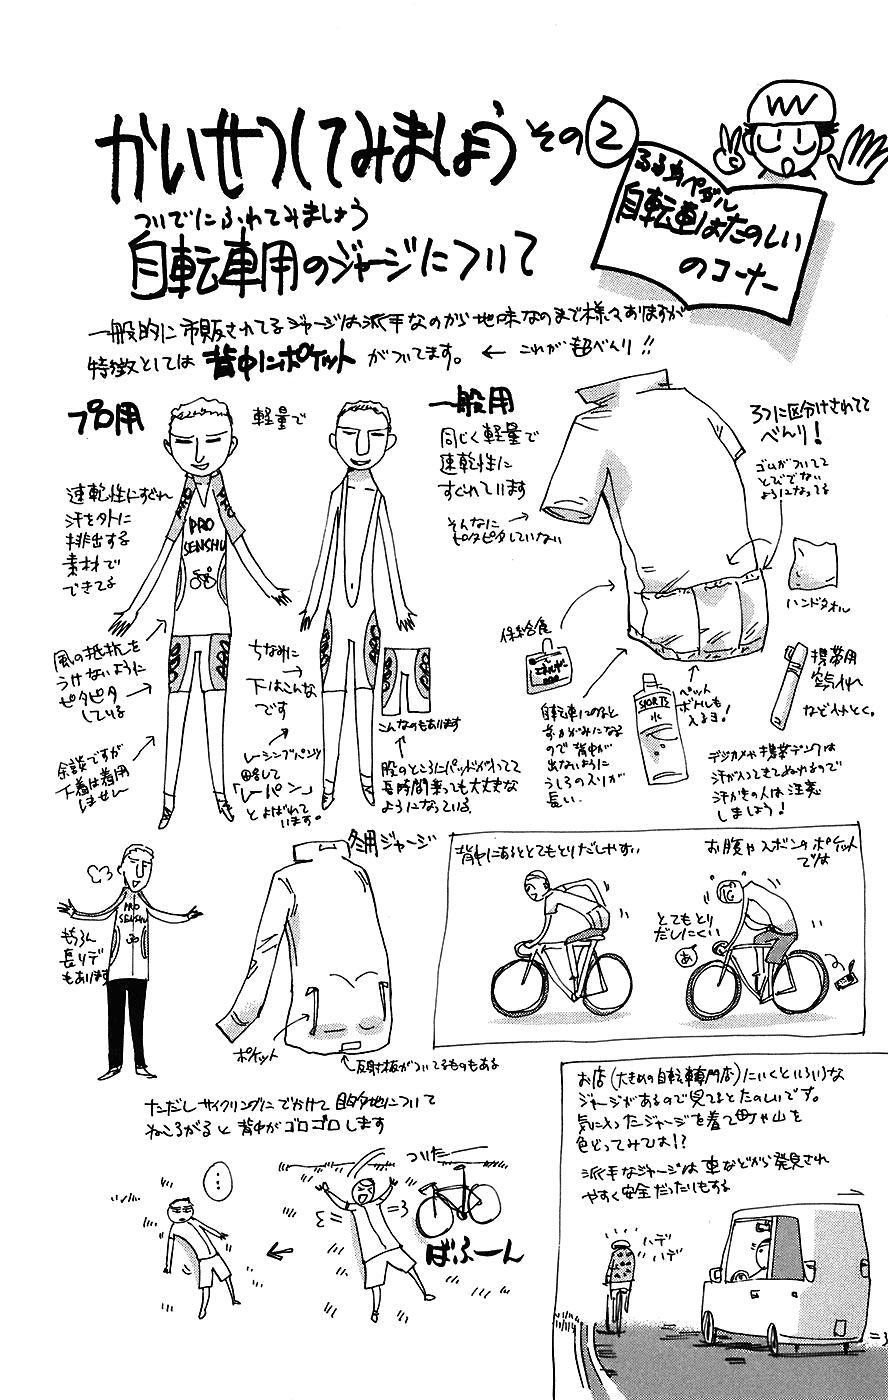 かいせつしてみましょう その②
るるるペダル
自転車はたのしい
のコーナー
ついでにふれてみましょう
自転車用のジャージについて
一般的に市販されてるジャージは派手なのから地味なのまで様々ありますが
特徴としては背中にポケットがついてます。← これが超べんり!!
プロ用
軽量で
速乾性にすぐれ
汗を外に
排出する
素材で
できてる
PRO
PRO
SENSHU
風の抵抗を
うけないように
ピタピタ
している
余談ですが
下着は着用
しませぬ
ちなみに
下はこんな
です
レーシングパンツ
略して
「レーパン」
とよばれて
います。
こんなのもあります
股のところにパッドが入ってて
長時間乗っても大丈夫な
ようになっている。
一般用
同じく軽量で
速乾性に
すぐれています
そんなに
ピタピタしていない
3つに区分けされてて
べんり!
ゴムがついてて
とびでない
ようになってる
ハンドタオル
補給食
エネルギー
SPORTS
水
ペット
ボトルも
入るヨ!
携帯用
空気入れ
などイロイロ。
自転車にのると
前かがみになる
ので背中が
出ないように
うしろのスソが
長い
デジカメや携帯デンワは
汗が入ってきてぬれるので
汗かきの人は注意
しましょう!
冬用ジャージ
PRO
SENSHU
もちろん
長ソデ
もあります
ポケット
反射板がついてるものもある
背中にあるととてもとりだしやすい
お腹やズボンのポケット
では
とてもとり
だしにくい
あ
ただしサイクリングにでかけて目的地について
ねころがると背中がゴロゴロします
ついたー
ばふーん
…
お店(大きめの自転車専門店)にいくといろいろな
ジャージがあるので見てるとたのしいです。
気に入ったジャージを着て町や山を
色どってみては!?
派手なジャージは車などから発見され
やすく安全だったりもする
ハデ
ハデ